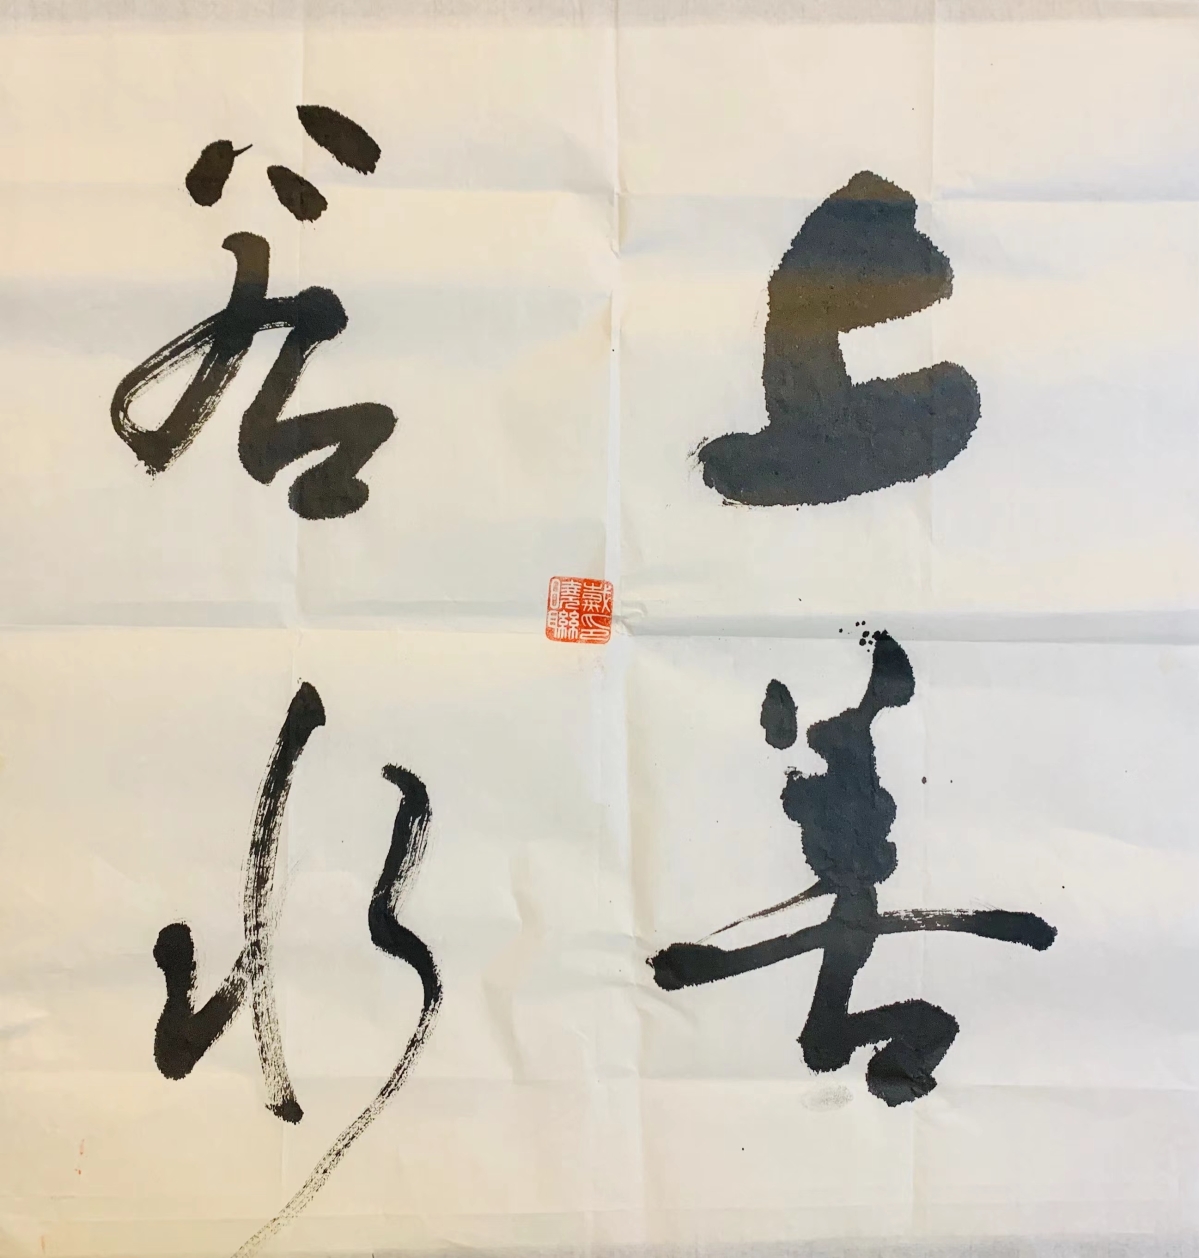 上善
若水
戴印
曉聯